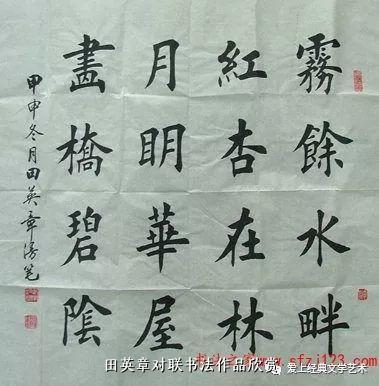 霧餘水畔
紅杏在林
月明華屋
畫橋碧陰
甲申冬月田英章漫笔
田英章对联书法作品欣赏
sfzj123.com
爱上经典文学艺术